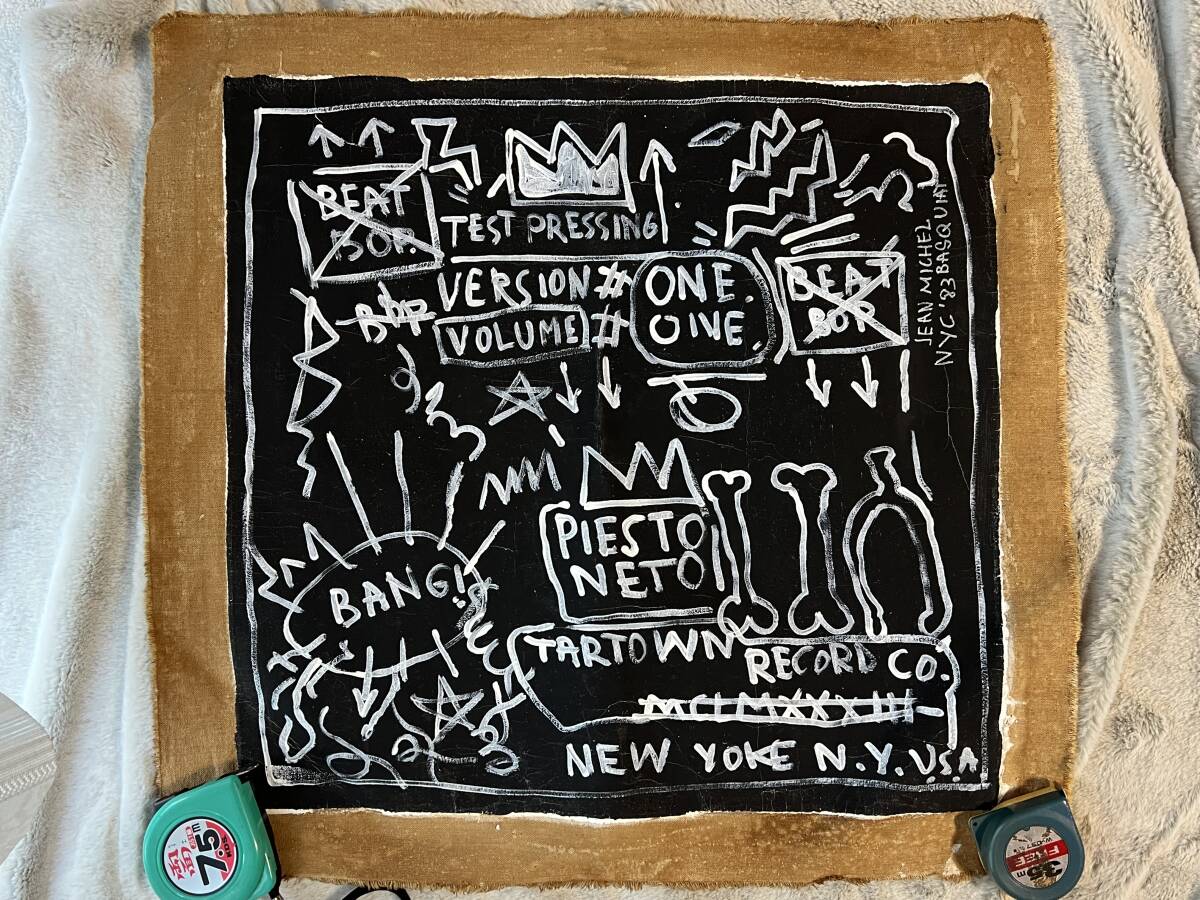 BEAT
BOP
TEST PRESSING
VERSION # ONE.
VOLUME # ONE.
BOP
BEAT
BOP
JEAN MICHEL
NYC '83 BASQUIAT
BANG!
PIESTO
NETO
TARTOWN
RECORD CO.
MCLMXXXIII
NEW YOKE N.Y. U.S.A
7.5m
KDS
FREE
3.5m